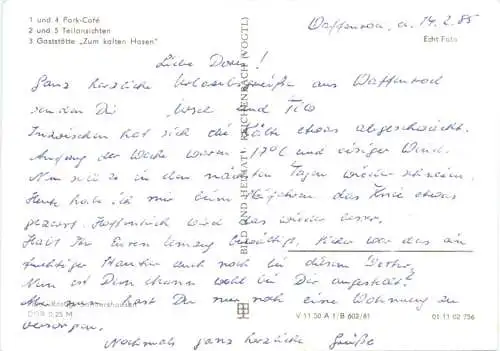 1 und 4 Park-Café
2 und 5 Teilansichten
3 Gaststätte „Zum kalten Hasen"
Waffenrod, d. 14.2.85
Echt Foto
Liebe Doris!
Ganz herzliche Urlaubsgrüße aus Waffenrod
senden Dir Ursel und Tilo
Inzwischen hat sich die Kälte etwas abgeschwächt.
Anfang der Woche waren -17°C und eisiger Wind.
Nun soll es in den nächsten Tagen wieder schneien.
Heute habe ich mir beim Skifahren das Knie etwas
gezerrt. Hoffentlich wird das wieder besser.
Habt Ihr Euren Umzug bewältigt. Sicher war das ein
Nun ist Dein Mann wohl bei Dir
Aber nun hast Du nur noch eine Wohnung zu
versorgen.
Nochmals ganz herzliche Grüße
BILD UND HEIMAT REICHENBACH (VOGTL)
DDR 0,25 M
V 11 50 A 1/B 602/81
01 11 02 756